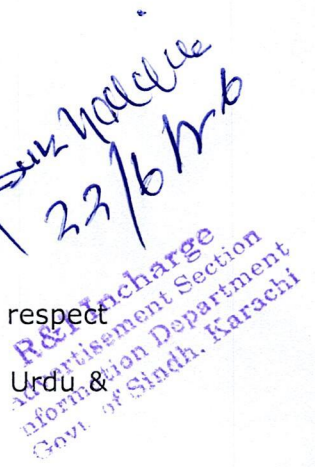 22/6/
respect
R&I Incharge
Advertisement Section
Information Department
Govt. of Sindh, Karachi
Urdu &